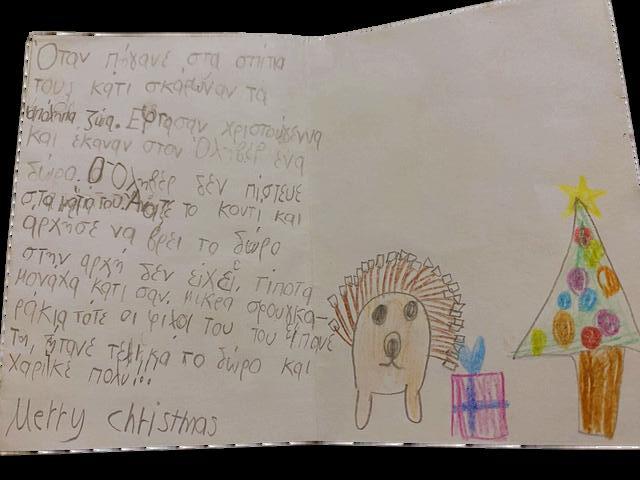 Όταν πήγανε στα σπίτια
τους κάτι σκαρώναν τα
υπόλοιπα ζώα. Έφτασαν χριστούγεννα
και έκαναν στον Όλιβερ ένα
δώρο. Ο Όληβερ δεν πίστευε
στα μάτια του. Άνοιξε το κουτί και
άρχησε να βρει το δώρο
στην αρχή δεν είχε τίποτα
μονάχα κάτι σαν μικρά σφουγκα-
ράκια τότε οι φίλοι του του είπανε
τι ήτανε τελικά το δώρο και
χάρικε πολύ!!!
Merry christmas